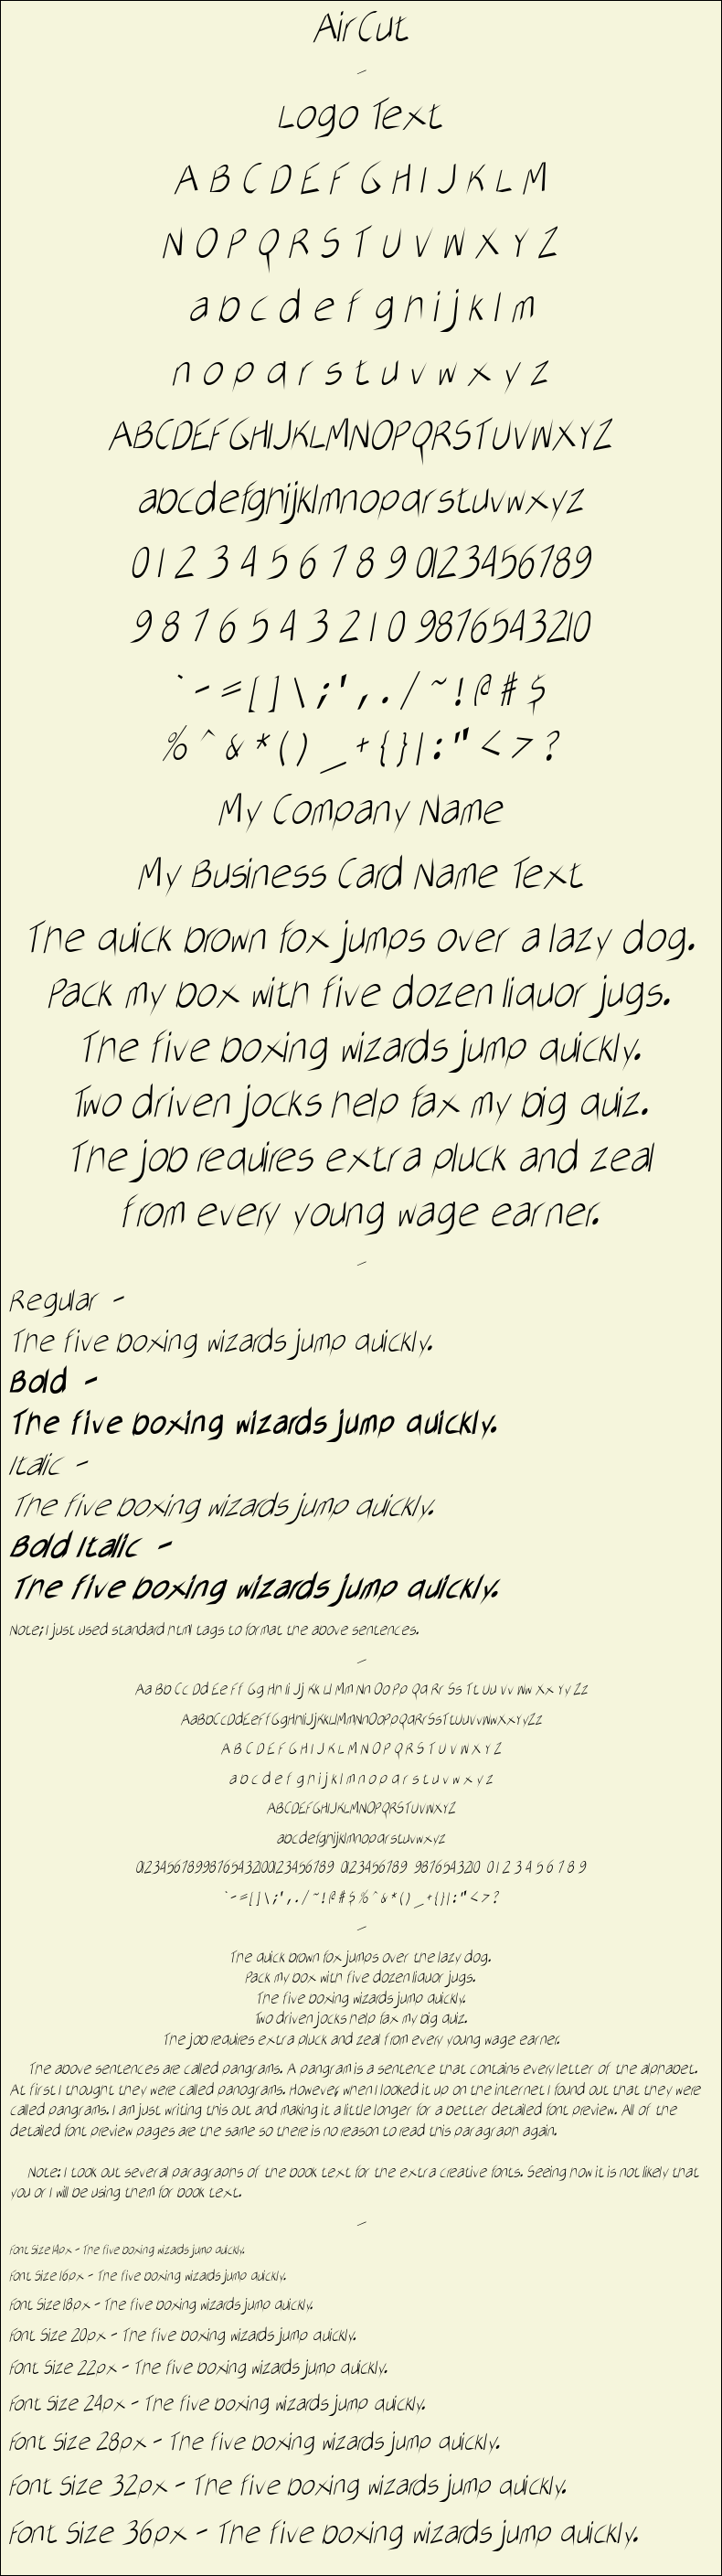 AirCut
-
Logo Text
A B C D E F G H I J K L M
N O P Q R S T U V W X Y Z
a b c d e f g h i j k l m
n o p q r s t u v w x y z
ABCDEFGHIJKLMNOPQRSTUVWXYZ
abcdefghijklmnopqrstuvwxyz
0 1 2 3 4 5 6 7 8 9 0123456789
9 8 7 6 5 4 3 2 1 0 9876543210
` - = [ ] \ ; ' , . / ~ ! @ # $
% ^ & * ( ) _ + { } | : " < > ?
My Company Name
My Business Card Name Text
The quick brown fox jumps over a lazy dog.
Pack my box with five dozen liquor jugs.
The five boxing wizards jump quickly.
Two driven jocks help fax my big quiz.
The job requires extra pluck and zeal
from every young wage earner.
-
Regular -
The five boxing wizards jump quickly.
Bold -
The five boxing wizards jump quickly.
Italic -
The five boxing wizards jump quickly.
Bold Italic -
The five boxing wizards jump quickly.
Note; I just used standard html tags to format the above sentences.
-
Aa Bb Cc Dd Ee Ff Gg Hh Ii Jj Kk Ll Mm Nn Oo Pp Qq Rr Ss Tt Uu Vv Ww Xx Yy Zz
AaBbCcDdEeFfGgHhIiJjKkLlMmNnOoPpQqRrSsTtUuVvWwXxYyZz
A B C D E F G H I J K L M N O P Q R S T U V W X Y Z
a b c d e f g h i j k l m n o p q r s t u v w x y z
ABCDEFGHIJKLMNOPQRSTUVWXYZ
abcdefghijklmnopqrstuvwxyz
012345678998765432100123456789 0123456789 9876543210 0 1 2 3 4 5 6 7 8 9
` - = [ ] \ ; ' , . / ~ ! @ # $ % ^ & * ( ) _ + { } | : " < > ?
-
The quick brown fox jumps over the lazy dog.
Pack my box with five dozen liquor jugs.
The five boxing wizards jump quickly.
Two driven jocks help fax my big quiz.
The job requires extra pluck and zeal from every young wage earner.
The above sentences are called pangrams. A pangram is a sentence that contains every letter of the alphabet.
At first I thought they were called panograms. However, when I looked it up on the internet I found out that they were
called pangrams. I am just writing this out and making it a little longer for a better detailed font preview. All of the
detailed font preview pages are the same so there is no reason to read this paragraph again.
Note: I took out several paragraphs of the book text for the extra creative fonts. Seeing how it is not likely that
you or I will be using them for book text.
-
Font Size 14px - The five boxing wizards jump quickly.
Font Size 16px - The five boxing wizards jump quickly.
Font Size 18px - The five boxing wizards jump quickly.
Font Size 20px - The five boxing wizards jump quickly.
Font Size 22px - The five boxing wizards jump quickly.
Font Size 24px - The five boxing wizards jump quickly.
Font Size 28px - The five boxing wizards jump quickly.
Font Size 32px - The five boxing wizards jump quickly.
Font Size 36px - The five boxing wizards jump quickly.